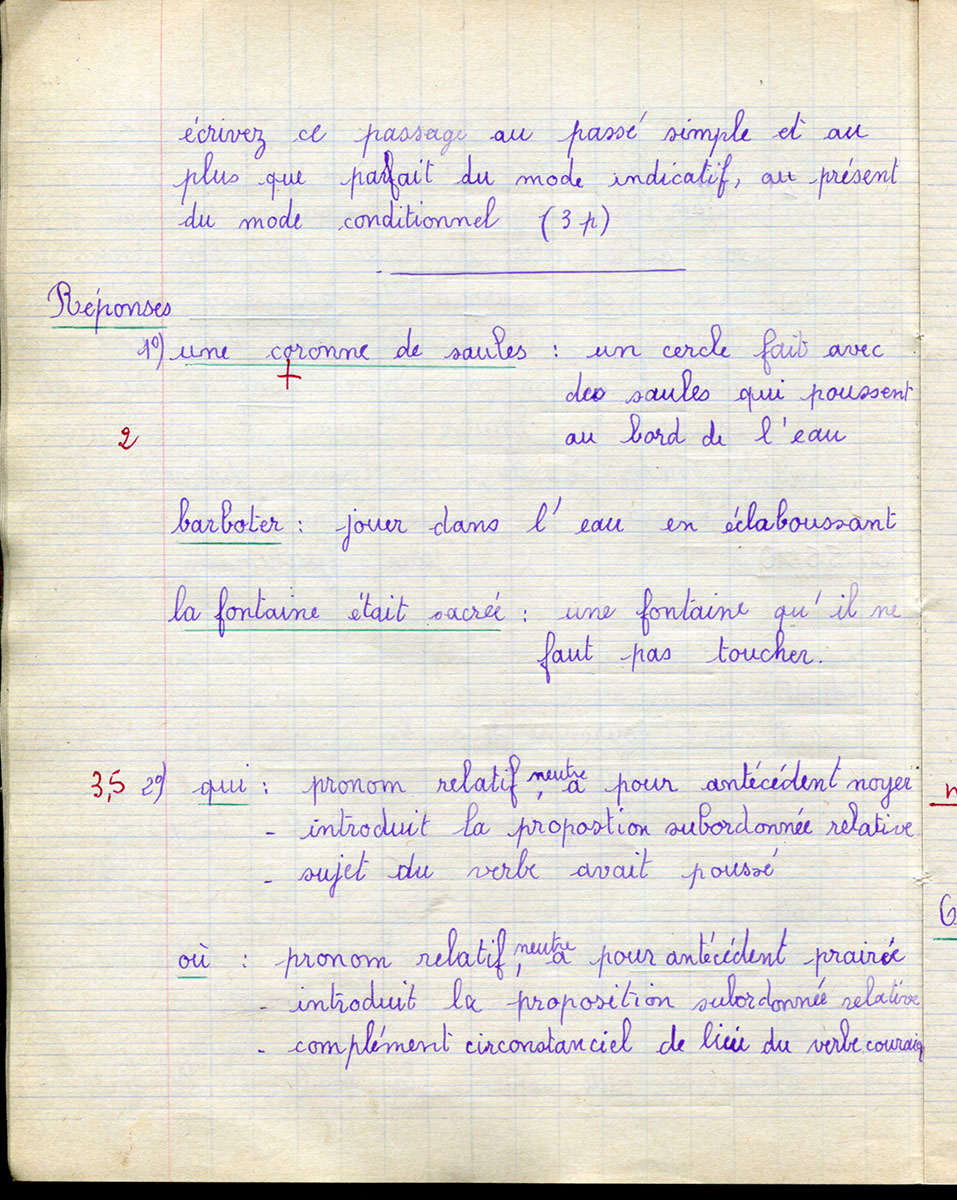 écrivez ce passage au passé simple et au
plus que parfait du mode indicatif, au présent
du mode conditionnel (3 p)
Réponses
1°) une coronne de saules : un cercle fait avec
+
des saules qui poussent
2
au bord de l'eau
barboter : jouer dans l'eau en éclaboussant
la fontaine était sacrée : une fontaine qu'il ne
faut pas toucher.
3,5 2°) qui : pronom relatif, neutre a pour antécédent noyer
- introduit la propostion subordonnée relative
- sujet du verbe avait poussé
où : pronom relatif, neutre a pour antécédent prairie
- introduit la proposition subordonnée relative
- complément circonstanciel de lieu du verbe